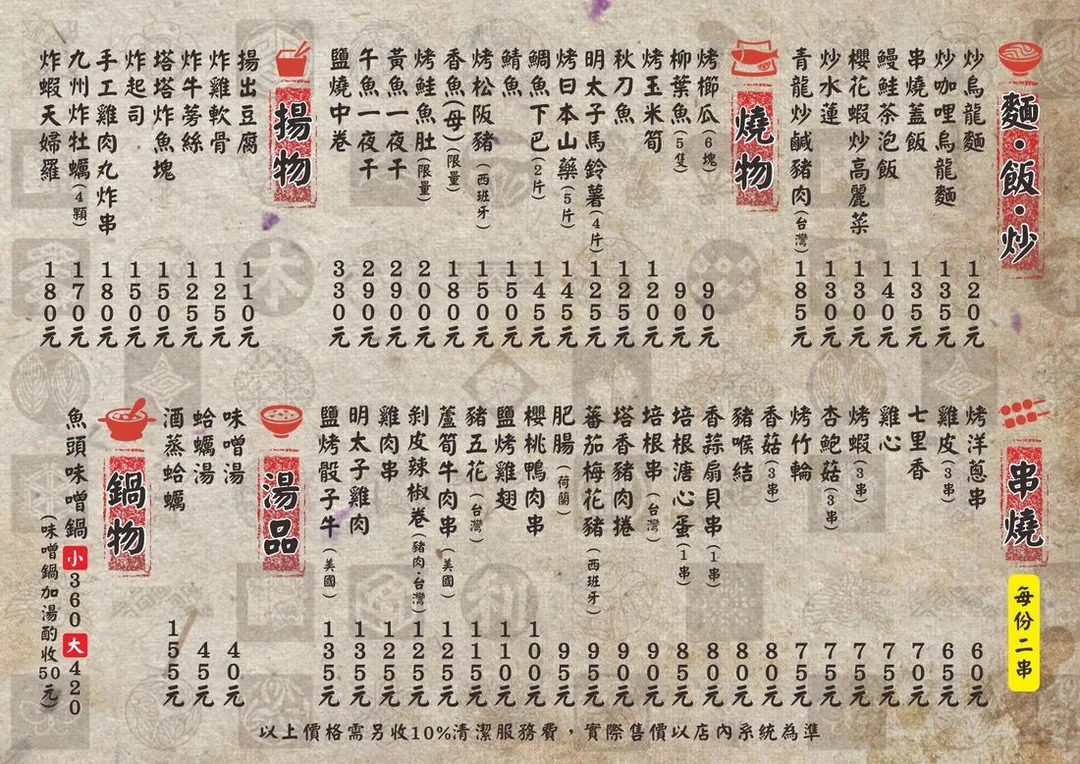 麵·飯·炒
炒烏龍麵 120元
炒咖哩烏龍麵 135元
串燒蓋飯 135元
鰻鮭茶泡飯 140元
櫻花蝦炒高麗菜 130元
炒水蓮 130元
青龍炒鹹豬肉(台灣) 185元
燒物
烤櫛瓜(6塊) 90元
柳葉魚(5隻) 90元
烤玉米筍 120元
秋刀魚 125元
明太子馬鈴薯(4片) 125元
烤日本山藥(5片) 145元
鯛魚下巴(2片) 145元
鯖魚 150元
烤松阪豬(西班牙) 150元
香魚(母)(限量) 180元
烤鮭魚肚(限量) 200元
黃魚一夜干 290元
午魚一夜干 290元
鹽燒中卷 330元
揚物
揚出豆腐 110元
炸雞軟骨 125元
炸牛蒡絲 125元
塔塔炸魚塊 150元
炸起司 150元
手工雞肉丸炸串 180元
九州炸牡蠣(4顆) 170元
炸蝦天婦羅 180元
串燒
每份二串
烤洋蔥串 60元
雞皮(3串) 65元
七里香 70元
雞心 75元
烤蝦(3串) 75元
杏鮑菇(3串) 75元
烤竹輪 75元
香菇(3串) 80元
豬喉結 80元
香蒜扇貝串(1串) 80元
培根溏心蛋(1串) 85元
培根串(台灣) 90元
塔香豬肉捲 90元
蕃茄梅花豬(西班牙) 95元
肥腸(荷蘭) 95元
櫻桃鴨肉串 100元
鹽烤雞翅 110元
豬五花(台灣) 115元
蘆筍牛肉串(美國) 125元
剝皮辣椒卷(豬肉·台灣) 125元
雞肉串 125元
明太子雞肉 135元
鹽烤骰子牛(美國) 135元
湯品
味噌湯 40元
蛤蠣湯 45元
酒蒸蛤蠣 155元
鍋物
魚頭味噌鍋 小360 大420
(味噌鍋加湯酌收50元)
以上價格需另收10%清潔服務費，實際售價以店內系統為準